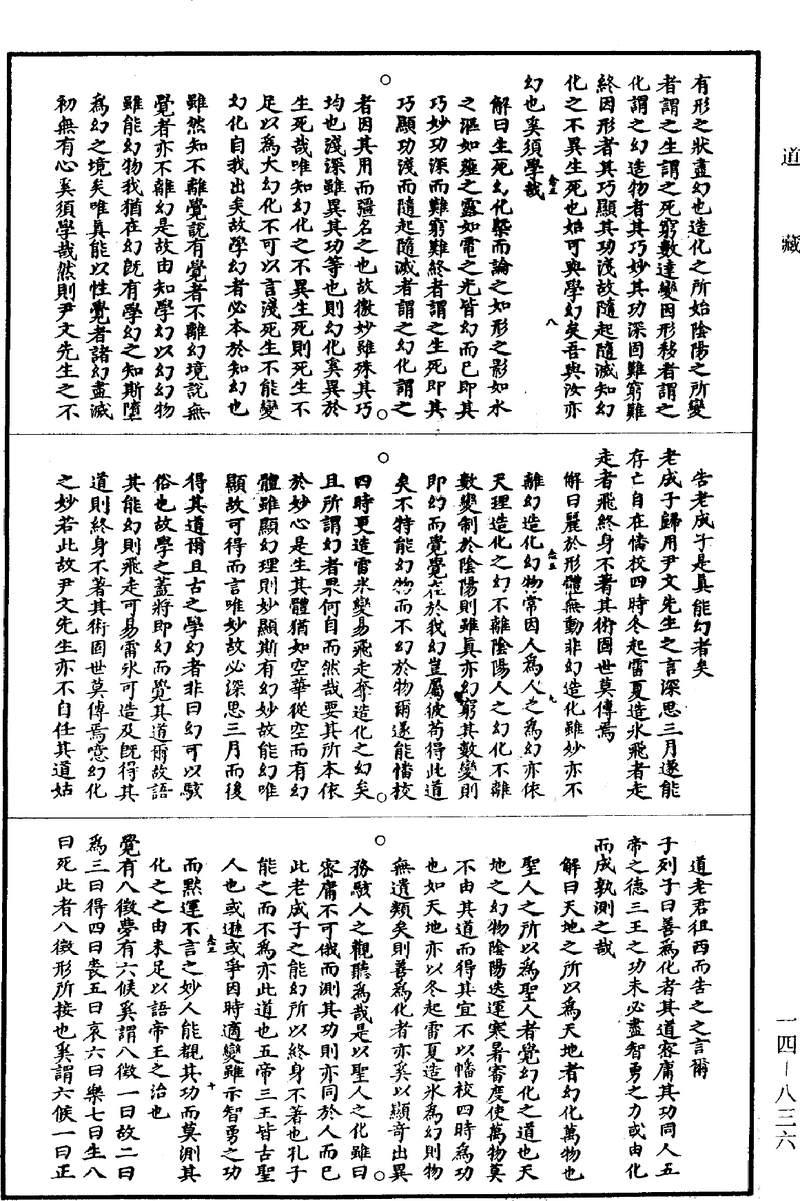 道藏
有形之狀盡幻也造化之所始陰陽之所變
者謂之生謂之死窮數達變因形移者謂之
化謂之幻造物者其巧妙其功深固難窮難
終因形者其巧顯其功淺故隨起隨滅知幻
化之不異生死也始可與學幻矣吾與汝亦
幻也奚須學哉
解曰生死幻化槩而論之如形之影如水
之漚如薤之露如電之光皆幻而已即其
巧妙功深而難窮難終者謂之生死即其
巧顯功淺而隨起隨滅者謂之幻化謂之
者因其用而彊名之也故微妙雖殊其巧
均也淺深雖異其功等也則幻化奚異於
生死哉唯知幻化之不異生死則死生不
足以爲大幻化不可以言淺死生不能變
幻化自我出矣故學幻者必本於知幻也
雖然知不離覺說有覺者不離幻境說無
覺者亦不離幻是故由知學幻以幻幻物
雖能幻物我猶在幻旣有學幻之知斯墮
爲幻之境矣唯眞能以性覺者諸幻盡滅
初無有心奚須學哉然則尹文先生之不
八
告老成子是眞能幻者矣
老成子歸用尹文先生之言深思三月遂能
存亡自在憣校四時冬起雷夏造氷飛者走
走者飛終身不著其術固世莫傳焉
解曰麗於形體無動非幻造化雖妙亦不
離幻造化幻物常因人爲人之爲幻亦依
天理造化之幻不離陰陽人之幻化不離
數變制於陰陽則雖眞亦幻窮其數變則
即幻而覺覺在於我幻豈屬彼苟得此道
矣不特能幻物而不幻於物爾遂能憣校
四時更造雷氷變易飛走奪造化之幻矣
且所謂幻者果何自而然哉要其所本依
於妙心是生其體猶如空華從空而有幻
體雖顯幻理則妙顯斯有幻妙故能幻唯
顯故可得而言唯妙故必深思三月而後
得其道爾且古之學幻者非曰幻可以駭
俗也故學之蓋將即幻而覺其道爾故語
其能幻則飛走可易雷氷可造及旣得其
道則終身不著其術固世莫傳焉噫幻化
之妙若此故尹文先生亦不自任其道姑
九
道老君徂西而告之之言爾
子列子曰善爲化者其道密庸其功同人五
帝之德三王之功未必盡智勇之力或由化
而成孰測之哉
解曰天地之所以爲天地者幻化萬物也
聖人之所以爲聖人者覺幻化之道也天
地之幻物陰陽迭運寒暑密度使萬物莫
不由其道而得其宜不以憣校四時爲功
也如天地亦以冬起雷夏造氷爲幻則物
無遺類矣則善爲化者亦奚以顯奇出異
務駭人之觀聽爲哉是以聖人之化雖曰
密庸不可俄而測其功則亦同於人而已
此老成子之能幻所以終身不著也孔子
能之而不爲亦此道也五帝三王皆古聖
人也或遜或爭因時適變雖示智勇之功
而黙運不言之妙人能覩其功而莫測其
化之之由未足以語帝王之治也
覺有八徵夢有六候奚謂八徵一曰故二曰
爲三曰得四曰喪五曰哀六曰樂七曰生八
曰死此者八徵形所接也奚謂六候一曰正
十
一四－八三六